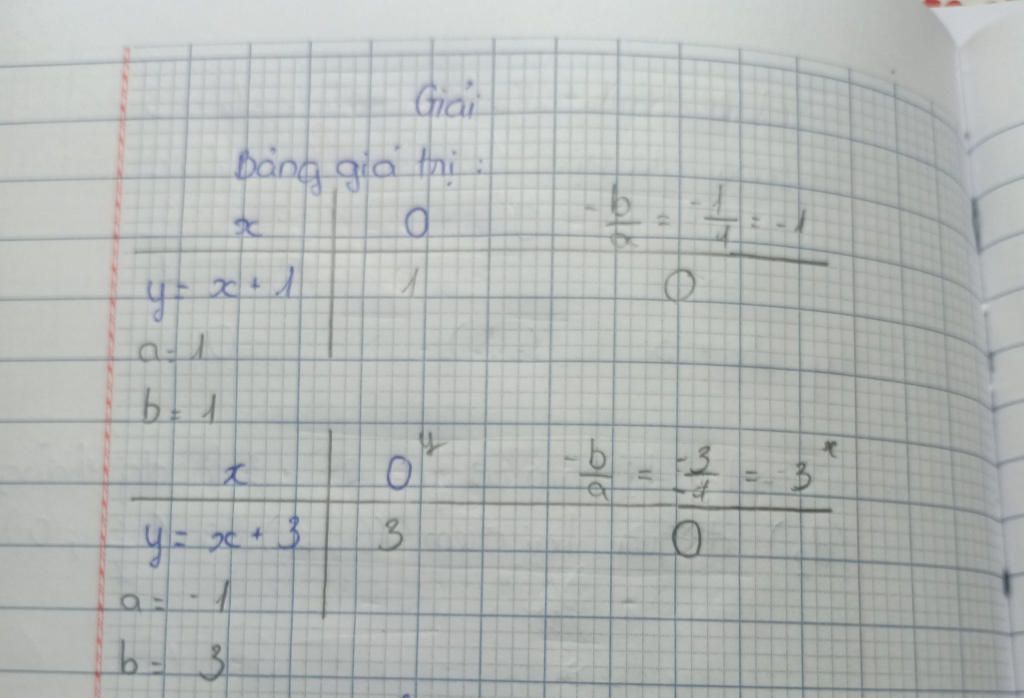 Giải
Bảng giá trị:
x 0 -b/a = -1/1 = -1
y = x + 1 1 0
a = 1
b = 1
x 0 y -b/a = -3/-1 = 3 x
y = x + 3 3 0
a = -1
b = 3